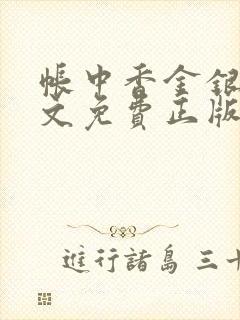 帳中香金銀
文免費正版
進行諸島 三十